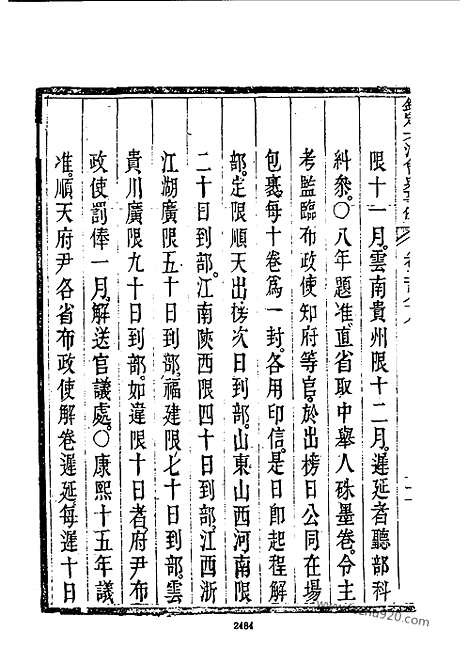 限十一月。雲南貴州限十二月。遲延者聽部科
糾參。○八年題准直省取中舉人硃墨卷。令主
考監臨布政使知府等官。於出榜日公同在場
包裹。每十卷爲一封。各用印信。是日即起程解
部。定限順天出榜次日到部。山東山西河南限
二十日到部。江南陝西限四十日到部。江西浙
江湖廣限五十日到部。福建限七十日到部。雲
貴川廣限九十日到部。如違限十日者。府尹布
政使罰俸一月。解送官議處。○康熙十五年議
准。順天府尹各省布政使解卷遲延。每遲十日
2484